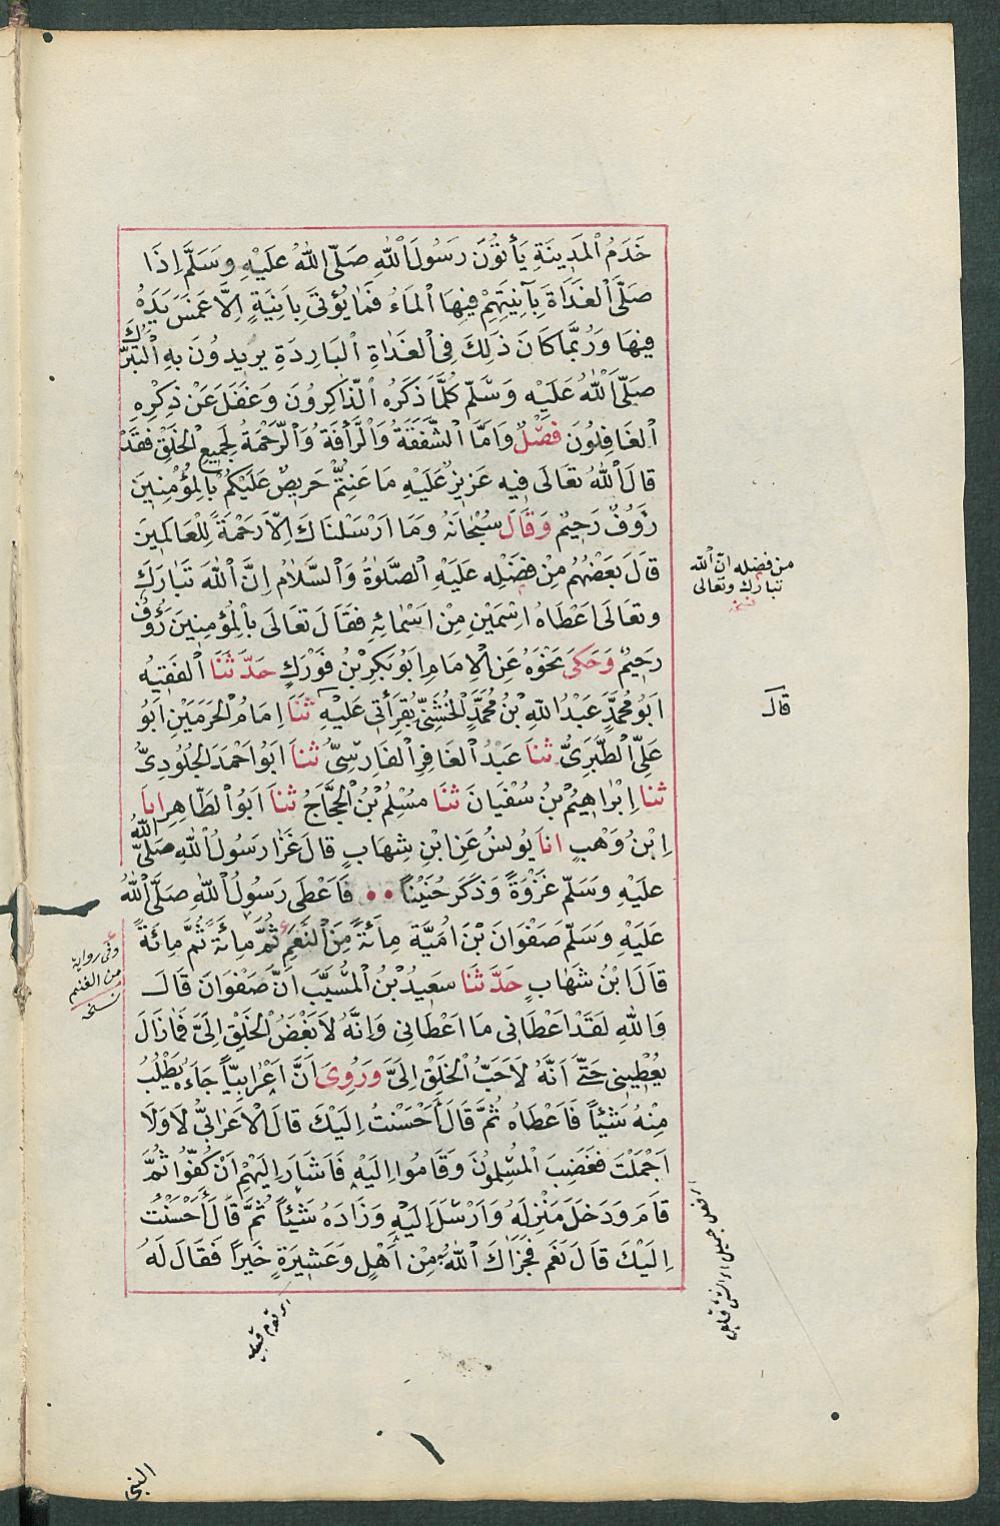 خَدَمُ الْمَدِينَةِ يَأْتُونَ رَسُولَ اللهِ صَلَّى اللهُ عَلَيْهِ وَسَلَّمَ اِذَا
صَلَّى الْغَدَاةَ بِآنِيَتِهِمْ فِيهَا الْمَاءُ فَمَا يُؤْتَى بِاٰنِيَةٍ اِلَّا غَمَسَ يَدَهُ
فِيهَا وَرُبَّمَا كَانَ ذٰلِكَ فِى الْغَدَاةِ الْبَارِدَةِ يُرِيدُونَ بِهِ التَّبَرُّكَ
صَلَّى اللهُ عَلَيْهِ وَسَلَّمَ كُلَّمَا ذَكَرَهُ الذَّاكِرُونَ وَغَفَلَ عَنْ ذِكْرِهِ
الْغَافِلُونَ فَصْلٌ وَاَمَّا الشَّفَقَةُ وَالرَّأْفَةُ وَالرَّحْمَةُ لِجَمِيعِ الْخَلْقِ فَقَدْ
قَالَ اللهُ تَعَالَى فِيهِ عَزِيزٌ عَلَيْهِ مَا عَنِتُّمْ حَرِيصٌ عَلَيْكُمْ بِالْمُؤْمِنِينَ
رَؤُفٌ رَحِيمٌ وَقَالَ سُبْحَانَهُ وَمَا اَرْسَلْنَاكَ اِلَّا رَحْمَةً لِلْعَالَمِينَ
قَالَ بَعْضُهُمْ مِنْ فَضْلِهِ عَلَيْهِ الصَّلٰوةُ وَالسَّلَامُ اِنَّ اللهَ تَبَارَكَ
وَتَعَالَى اَعْطَاهُ اِسْمَيْنِ مِنْ اَسْمَائِهِ فَقَالَ تَعَالَى بِالْمُؤْمِنِينَ رَؤُفٌ
رَحِيمٌ وَحَكَى نَحْوَهُ عَنِ الْاِمَامِ اَبُو بَكْرِ بْنُ فَوْرَكٍ حَدَّثَنَا الْفَقِيهُ
اَبُو مُحَمَّدٍ عَبْدُ اللهِ بْنُ مُحَمَّدٍ الْخُشَنِىُّ بِقِرَأَتِى عَلَيْهِ ثَنَا اِمَامُ الْحَرَمَيْنِ اَبُو
عَلِىٍّ الطَّبَرِىُّ ثنَا عَبْدُ الْغَافِرِ الْفَارِسِىُّ ثنَا اَبُو اَحْمَدَ الْجُلُودِىُّ
ثنَا اِبْرَاهِيمُ بْنُ سُفْيَانَ ثَنَا مُسْلِمُ بْنُ الْحَجَّاجُ ثنَا اَبُو الطَّاهِرِ انَا
اِبْنُ وَهْبٍ انَا يُونِسُ عَنِ ابْنِ شِهَابٍ قَالَ غَزَا رَسُولُ اللهِ صَلَّى اللهُ
عَلَيْهِ وَسَلَّمَ غَزْوَةً وَذَكَرَ حُنَيْنًا فَاَعْطَى رَسُولُ اللهِ صَلَّى اللهُ
عَلَيْهِ وَسَلَّمَ صَفْوَانَ بْنَ اُمَيَّةَ مِائَةً مِنَ النَّعَمِ ثُمَّ مِائَةً ثُمَّ مِائَةً
قَالَ ابْنُ شَهَابٍ حَدَّثَنَا سَعِيدُ بْنُ الْمُسَيَّبَ اَنَّ صَفْوَانَ قَالَ
وَاللهِ لَقَدْ اَعْطَانِى مَا اَعْطَانِى وَاِنَّهُ لَاَبْغَضُ الْخَلْقِ اِلَىَّ فَمَا زَالَ
يُعْطِينِى حَتَّى اَنَّهُ لَاَحَبُّ الْخَلْقِ اِلَىَّ وَرُوِىَ اَنَّ اَعْرَابِيًّا جَاءَهُ يَطْلُبُ
مِنْهُ شَيْئًا فَاَعْطَاهُ ثُمَّ قَالَ أَحْسَنْتُ اِلَيْكَ قَالَ الْاَعْرَابِىُّ لَا وَلَا
اَجْمَلْتَ فَغَضِبَ الْمُسْلِمُونَ وَقَامُوا اِلَيْهِ فَاَشَارَ اِلَيْهِمْ اَنْ كُفُّوا ثُمَّ
قَامَ وَدَخَلَ مَنْزِلَهُ وَاَرْسَلَ اِلَيْهِ وَزَادَهُ شَيْئًا ثُمَّ قَالَ أَحْسَنْتُ
اِلَيْكَ قَالَ نَعَم فَجَزَاكَ اللهُ بِهِ مِنْ اَهْلٍ وَعَشِيرَةٍ خَيْرًا فَقَالَ لَهُ
من فضله انّ الله
تبارك وتعالى
نسخه
قال
وفى رواية
من الغنم
نسخه
النبى